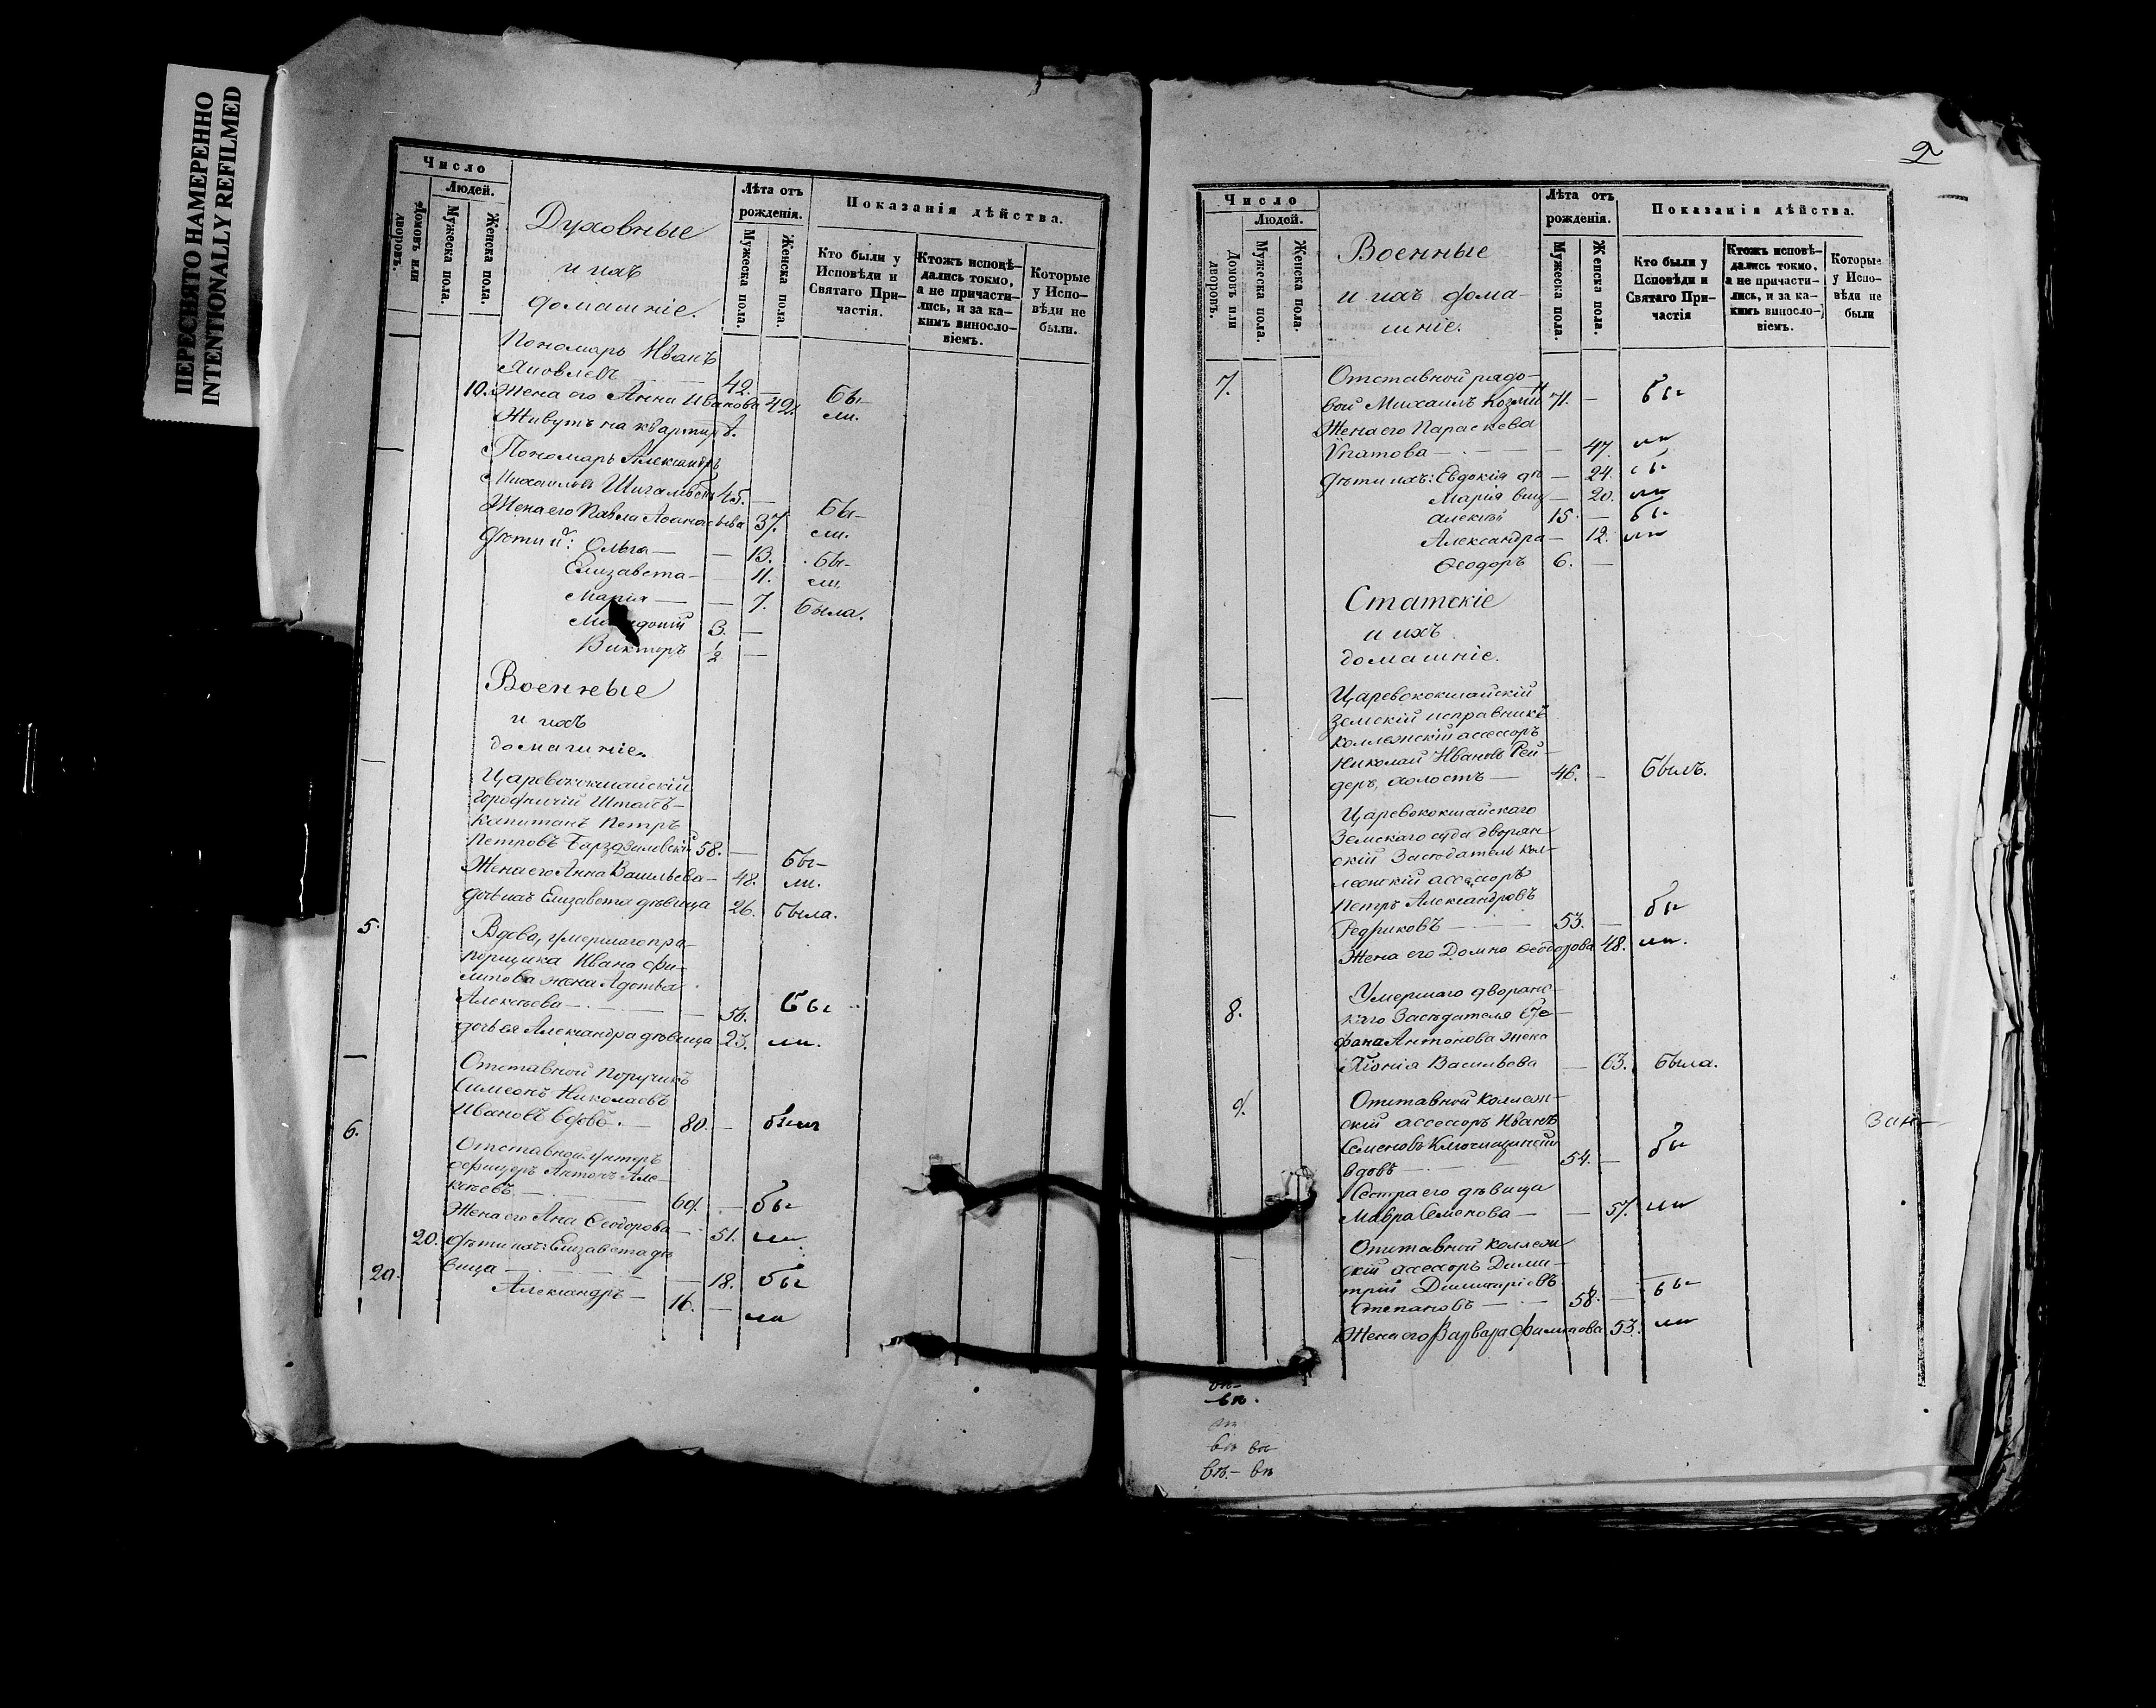 ПЕРЕСНЯТО НАМЕРЕННО
INTENTIONALLY REFILMED
Число
Людей.
Домовъ или дворовъ.
Мужеска пола.
Женска пола.
Духовные
и ихъ
домашніе.
Лѣта отъ рожденія.
Мужеска пола.
Женска пола.
Показанія дѣйства.
Кто были у Исповѣди и Святаго При-
частія.
Ктожъ исповѣ-
дались токмо,
а не причасти-
лись, и за ка-
кимъ винослo-
віемъ.
Которые
у Испо-
вѣди не
были.
Пономарь Иванъ
Яковлевъ — 42. —
10. Жена его Анна Иванова 42. Бы-
ли.
Живутъ на квартирѣ.
Пономарь Александръ
Михаиловъ 45. —
Жена его Павла Аѳанасьева 37. Бы-
ли.
дѣти их: Ольга — — 13. Бы-
Елизавета — — 11. ли.
Марія — — 7. Была.
3. —
Викторъ 1/2 —
Военные
и ихъ
домашніе.
Царевококшайскій
городничій Штабъ-
Капитанъ Петръ
Петровъ 58. —
Бы-
Жена его Анна Васильева — 48. ли.
дочь ихъ Елизавета дѣвица 26. Была.
5.
Вдова, умершаго пра-
порщика Ивана Фи-
липова жена
Алексѣева — — 56. Бы
дочь ея Александра дѣвица 23. ли.
Отставной Поручикъ
Симеонъ Николаевъ
Ивановъ вдовъ. — 80. — былъ
6.
Отставной унтеръ
офицеръ Антонъ Але-
ксѣевъ. — — бы
Жена его Ана Ѳеодорова — 51. ли
20. дѣти ихъ: Елизавета дѣ
20. вица — — 18. бы
Александръ — 16. — ли
2
Число
Людей.
Домовъ или дворовъ.
Мужеска пола.
Женска пола.
Военные
и ихъ дома-
шніе.
Лѣта отъ рожденія.
Мужеска пола.
Женска пола.
Показанія дѣйства.
Кто были у
Исповѣди и
Святаго При-
частія
Ктожъ исповѣ-
дались токмо,
а не причасти-
лись, и за ка-
кимъ винослo-
віемъ.
Которые
у Испо-
вѣди не
были
7. Отставной рядо-
вой Михаилъ Козмин 71. — бы
Жена его Параскева
Ипатова — — 47. ли
дѣти ихъ: Евдокія дѣ — 24. бы
Марія виц — 20. ли
Алексѣй 15. — бы
Александра — 12. ли
Ѳеодоръ 6. —
Статскіе
и ихъ
домашніе.
Царевококшайскій
земскій исправникъ
коллежскій ассесоръ
Николай Ивановъ Рей-
деръ, холостъ — 46. — былъ.
Царевококшайскаго
Земскаго суда дворян
скій Засѣдатель кол-
лежскій ассесоръ
Петръ Александровъ
Редриковъ — 53. — бы
Жена его Домна Ѳеодорова 48. ли.
8. Умершаго дворянс-
каго Засѣдателя Сте-
фана Антонова жена
Хіонія Васильева — 63. Была.
9. Отставной Коллеж-
скій ассесоръ Иванъ
Семеновъ
вдовъ — 54. — бы
Сестра его дѣвица
Мавра Семенова — — 57. ли
Отставной Коллеж
скій ассесоръ Дими-
трій Димитріевъ
Степановъ — 58. — бы
Жена его Варвара Филипова 53. ли